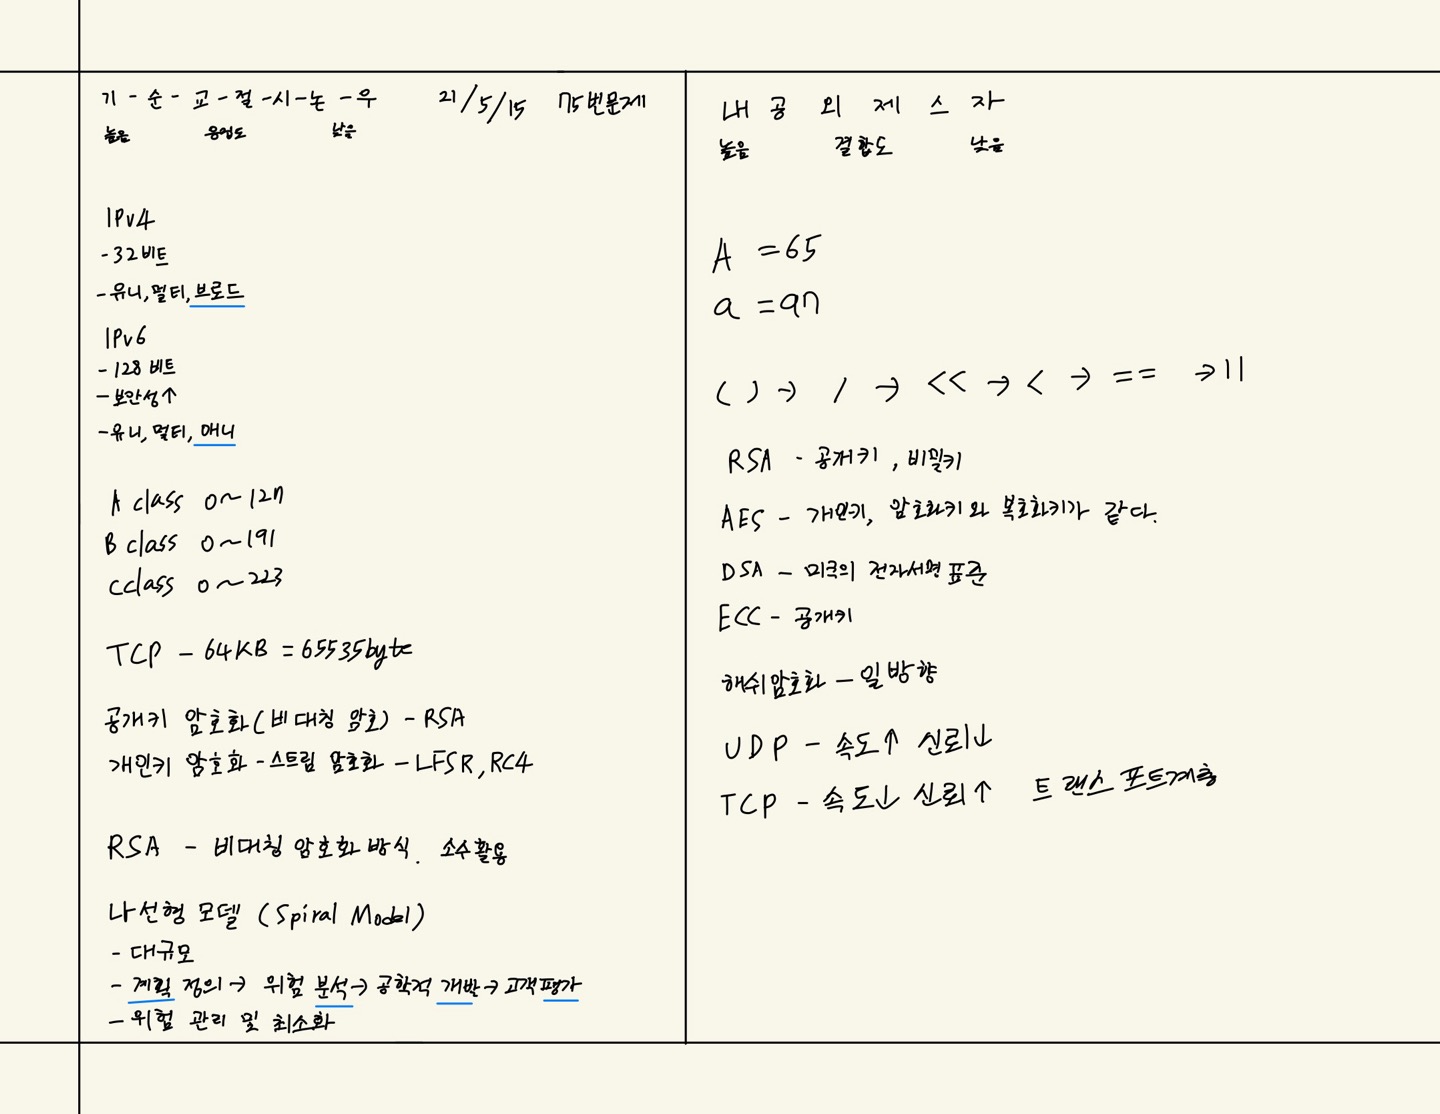 기 - 순 - 교 - 절 - 시 - 논 - 우 21/5/15 75번문제
높음 응집도 낮음
IPv4
- 32비트
- 유니, 멀티, 브로드
IPv6
- 128 비트
- 보안성↑
- 유니, 멀티, 애니
A class 0~127
B class 0~191
C class 0~223
TCP - 64KB = 65535byte
공개키 암호화(비대칭 암호) - RSA
개인키 암호화 - 스트림 암호화 - LFSR, RC4
RSA - 비대칭 암호화 방식. 소수활용
나선형 모델 (Spiral Model)
- 대규모
- 계획 정의 → 위험 분석 → 공학적 개발 → 고객평가
- 위험 관리 및 최소화
내 공 외 제 스 자
높음 결합도 낮음
A = 65
a = 97
( ) → / → << → < → == → ||
RSA - 공개키, 비밀키
AES - 개인키, 암호화키와 복호화키가 같다.
DSA - 미국의 전자서명 표준
ECC - 공개키
해쉬암호화 - 일방향
UDP - 속도↑ 신뢰↓
TCP - 속도↓ 신뢰↑ 트랜스포트계층